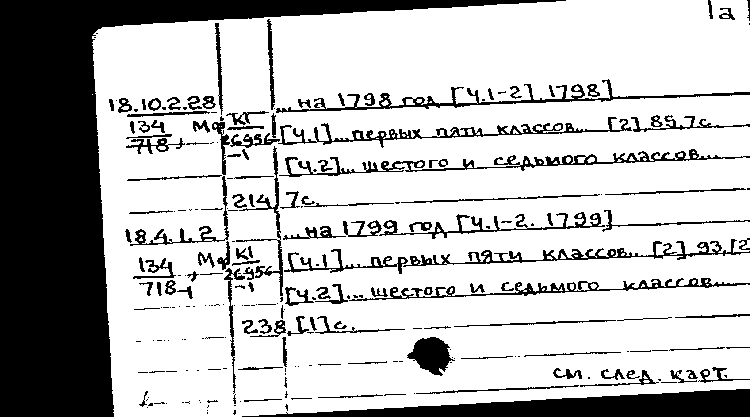 1а
18.10.2.28 ... на 1798 год [Ч.1-2]. 1798]
134/718, Мф К1/26956-1 [Ч.1]... первых пяти классов... [2], 85, 7 с.
[Ч.2]... шестого и седьмого классов...
214, 7с.
18.4.1.2 ... на 1799 год [Ч.1-2. 1799]
134/718-1, Мф К1/26956-1 [Ч.1]... первых пяти классов... [2], 93, [2
[Ч.2]... шестого и седьмого классов...
238, [1] с.
см. след. карт.